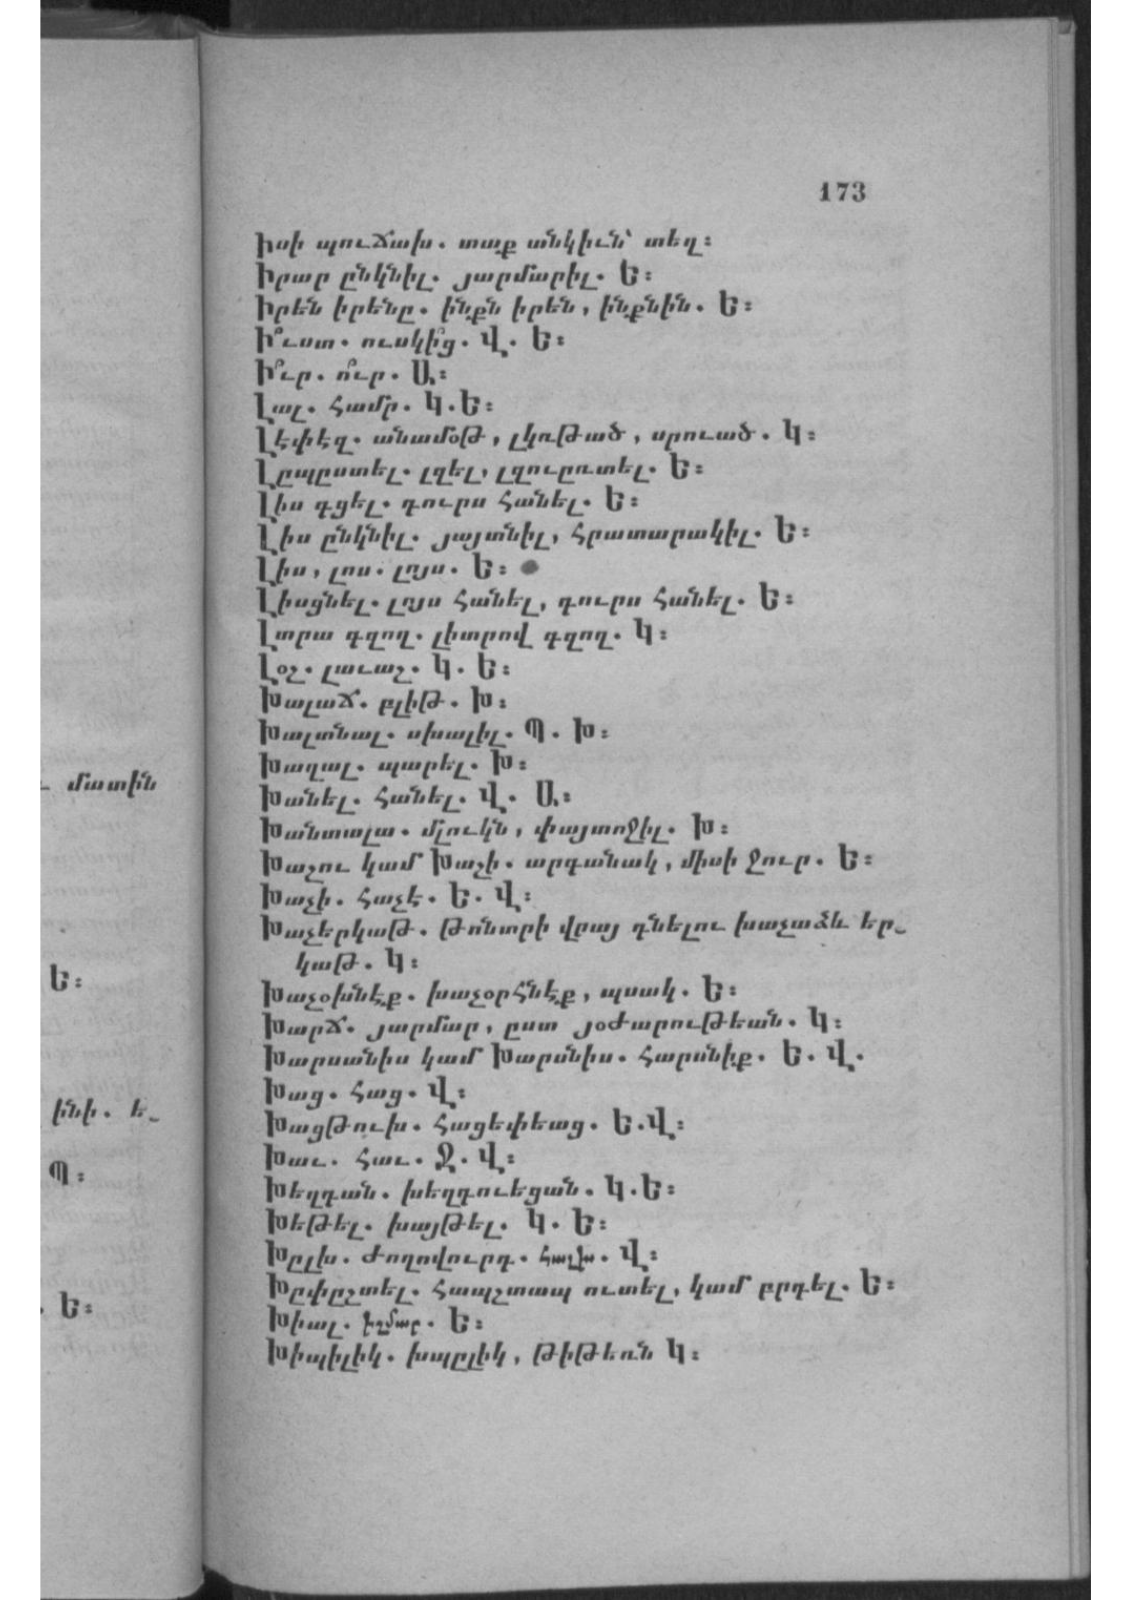 173
Իսի պուճախ. տաք անկիւն՝ տեղ։
Իրար ընկնիլ. յարմարիլ. Ե։
Իրեն իրենը. ինքն իրեն, ինքնին. Ե։
Ի՞ւստ. ուսկի՞ց. Վ. Ե։
Ի՞ւր. ո՞ւր. Ա։
Լալ. համր. Կ.Ե։
Լէփէզ. անամօթ, լկռթած, սրուած. Կ։
Լըպըստել. լզել, լզուըռտել. Ե։
Լիս գցել. դուրս հանել. Ե։
Լիս ընկնիլ. յայտնիլ, հրատարակիլ. Ե։
Լիս, լոս. լոյս. Ե։
Լիսցնել. լոյս հանել, դուրս հանել. Ե։
Լտրա գզող. լիտրով գզող. Կ։
Լօշ. լաւաշ. Կ. Ե։
Խալաճ. բլիթ. Խ։
Խալտնալ. սխալիլ. Պ. Խ։
Խաղալ. պարել. Խ։
Խանել. հանել. Վ. Ա։
Խանտալա. մլուկն, փայտոջիլ. Խ։
Խաշու կամ Խաշի. արգանակ, միսի ջուր. Ե։
Խաչի. հաչէ. Ե. Վ։
Խաչերկաթ. թոնտրի վրայ դնելու խաչաձև եր֊
կաթ. Կ։
Խաչօխնէք. խաչօրհնէք, պսակ. Ե։
Խարճ. յարմար, ըստ յօժարութեան. Կ։
Խարսանիս կամ Խարսնիս. հարսնիք. Ե. Վ.
Խաց. հաց. Վ։
Խացթուխ. հացեփեաց. Ե.Վ։
Խաւ. հաւ. Ջ. Վ։
Խեղդան. խեղդուեցան. Կ.Ե։
Խեթել. խայթել. Կ. Ե։
Խըլխ. ժողովուրդ. հալխ. Վ։
Խըփըշտել. հապշտապ ուտել, կամ բրդել. Ե։
Խիալ. խըմար. Ե։
Խիպիլիկ. խպըլիկ, թիթեռն Կ։
մատին
Ե։
ինի. ե֊
Պ։
. Ե։